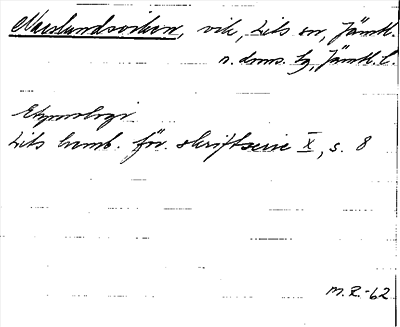 Naeslundsviken, vik, Lits sn, Jämtl.
n. doms. tg, Jämtl. l.
Etymologi
Lits hemb. för. skriftserie X, s. 8
M.R.-62